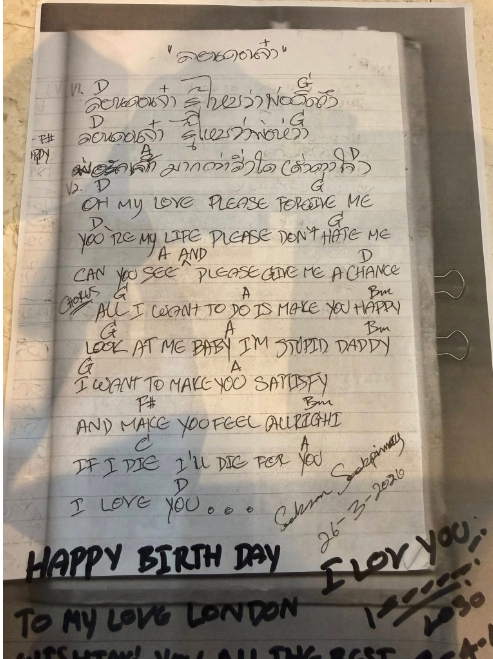 "ลอนดอนจ๋า"
V1. D G
ลอนดอนจ๋า รู้ไหมว่าพ่อคิดถึง
D G
ลอนดอนจ๋า รู้ไหมว่าพ่อห่วง
A D
มากกว่าสิ่งใด
V2. D G
OH MY LOVE PLEASE FORGIVE ME
D G
YOU'RE MY LIFE PLEASE DON'T HATE ME
A AND D
CAN YOU SEE ^ PLEASE GIVE ME A CHANCE
CHORUS G A Bm
ALL I WANT TO DO IS MAKE YOU HAPPY
G A Bm
LOOK AT ME BABY I'M STUPID DADDY
G A
I WANT TO MAKE YOU SATISFY
F# Bm
AND MAKE YOU FEEL ALLRIGHT
A
IF I DIE I'LL DIE FOR YOU
D
I LOVE YOU...
26-3-2020
HAPPY BIRTH DAY
I LOV YOU
TO MY LOVE LONDON
WISHING YOU ALL THE BEST